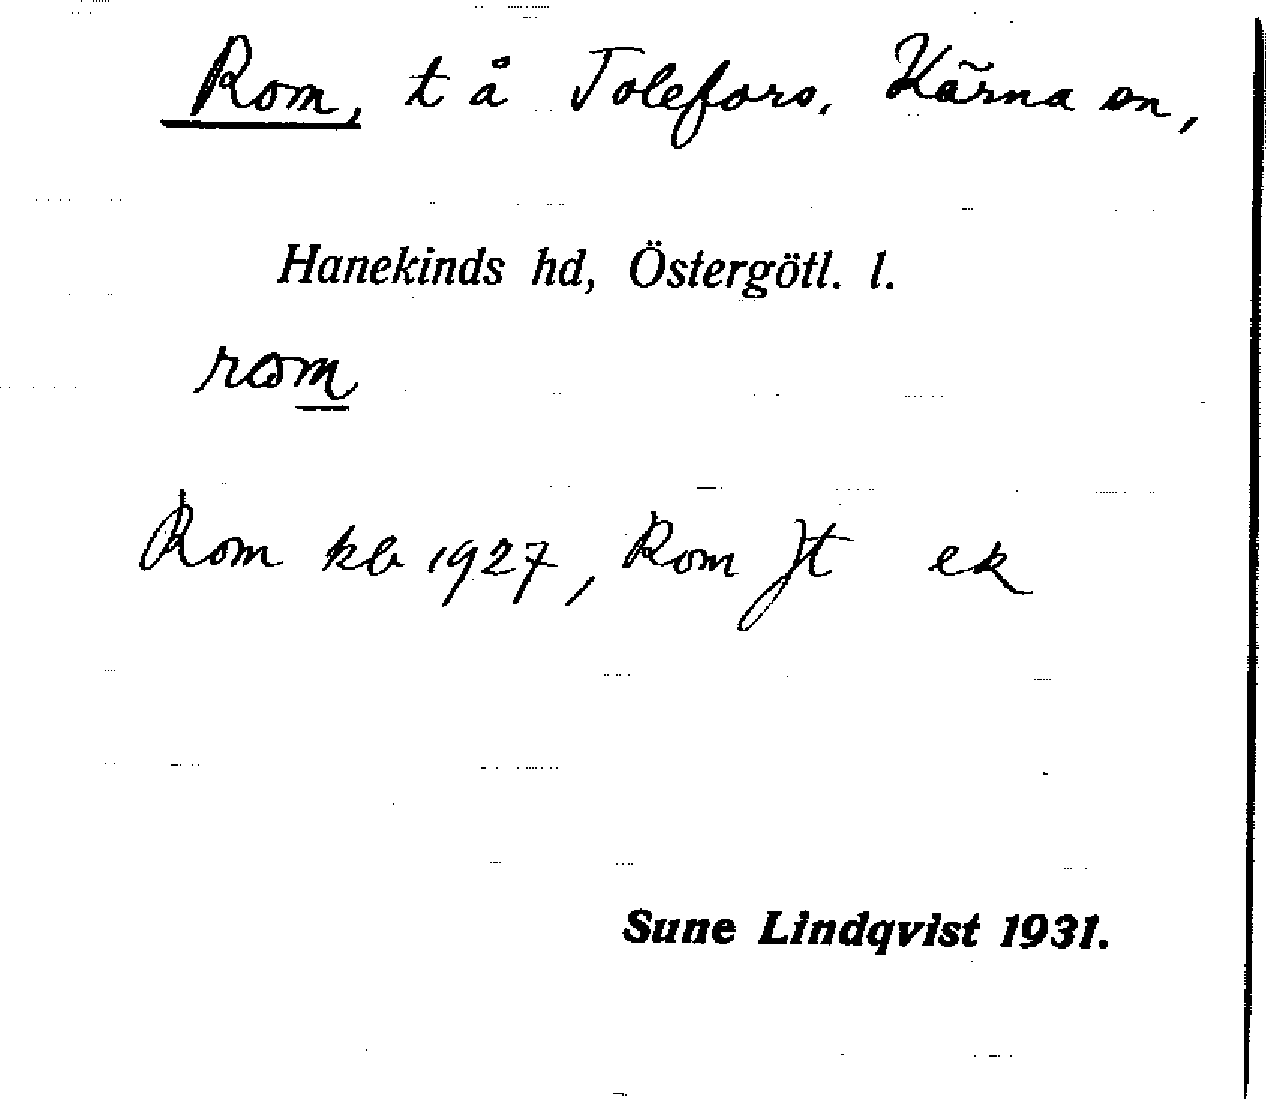 Rom, t å Tolefors. Kärna sn,
Hanekinds hd, Östergötl. l.
rom
Rom kb 1927, Rom Jt ek
Sune Lindqvist 1931.